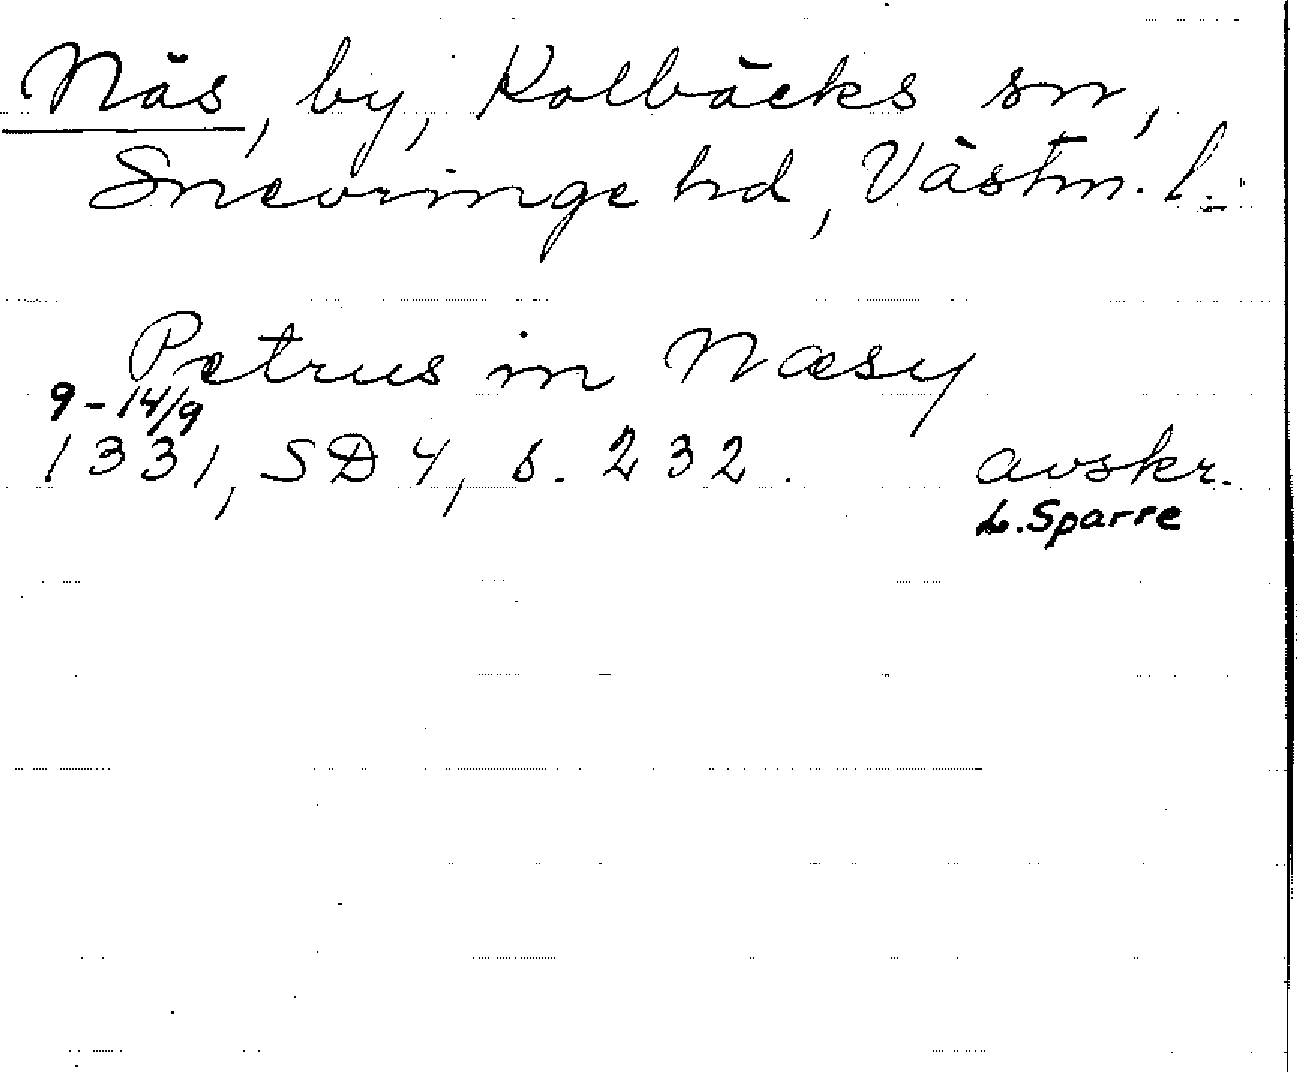 Näs, by, Kolbäcks sn,
Snevringe hd, Västm. l.
Petrus in Næsy
9-14/9
1331, SD 4, s. 232. avskr.
L. Sparre